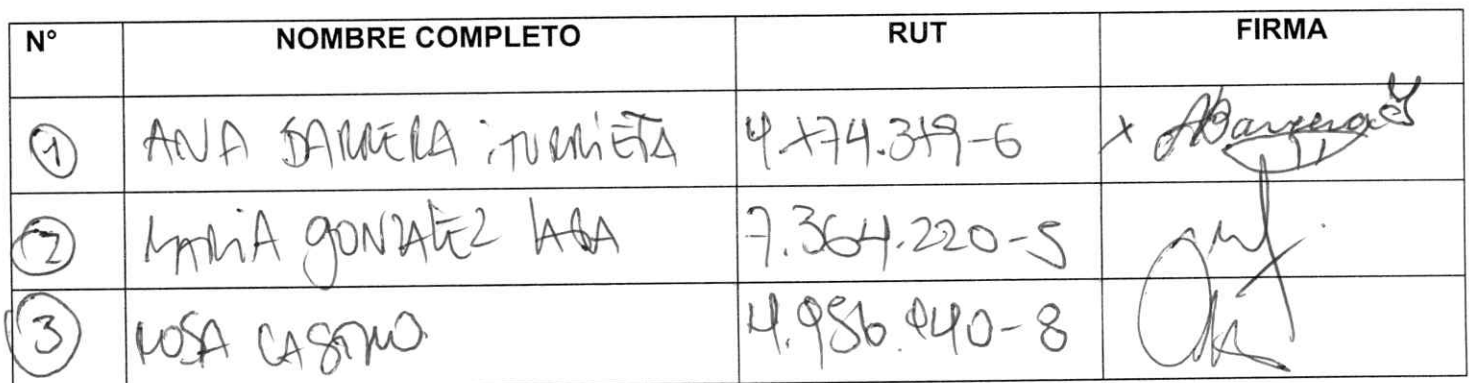 N° NOMBRE COMPLETO RUT FIRMA
1 ANA BARRERA iTURRiETA 4.774.379-6 x ABarrera
2 MARiA gONZALEZ 7.364.220-5
3 ROSA CASTRO 4.956.940-8